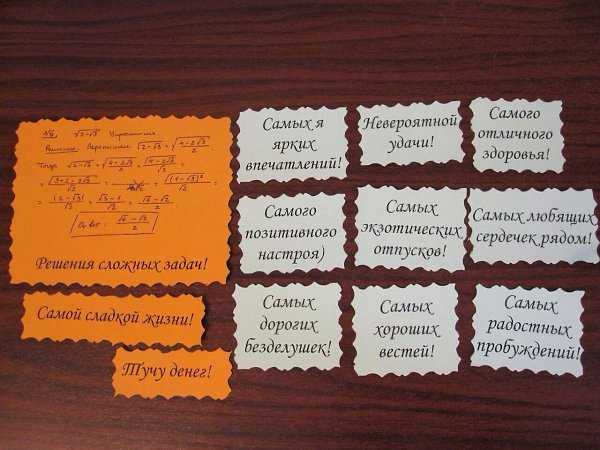 №6. √2-√3 Упростить
Решение √2-√3 = √4-2√3/2
Тогда
Ответ: √6-√2/2
Решения сложных задач!
Самой сладкой жизни!
Тучу денег!
Самых я
ярких
впечатлений!
Невероятной
удачи!
Самого
отличного
здоровья!
Самого
позитивного
настроя)
Самых
экзотических
отпусков!
Самых любящих
сердечек рядом!
Самых
дорогих
безделушек!
Самых
хороших
вестей!
Самых
радостных
пробуждений!